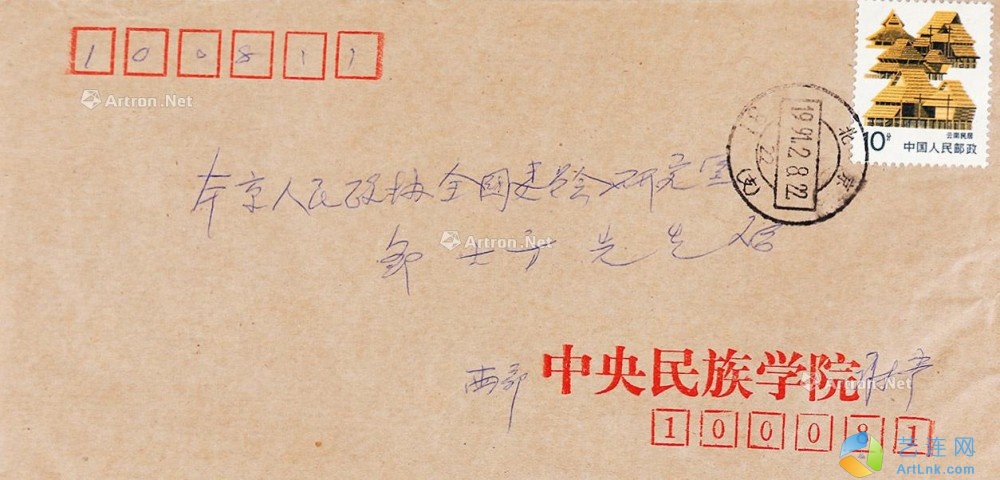 100811
云南民居
10分
中国人民邮政
北京
1991.2.8.22
22
(支)
Artron.Net
本京人民政协全国委员会研究室
邹士方先生启
Artron.Net
西郊 中央民族学院
100081
Artron.Net
Artron.Net
艺连网
ArtLnk.com